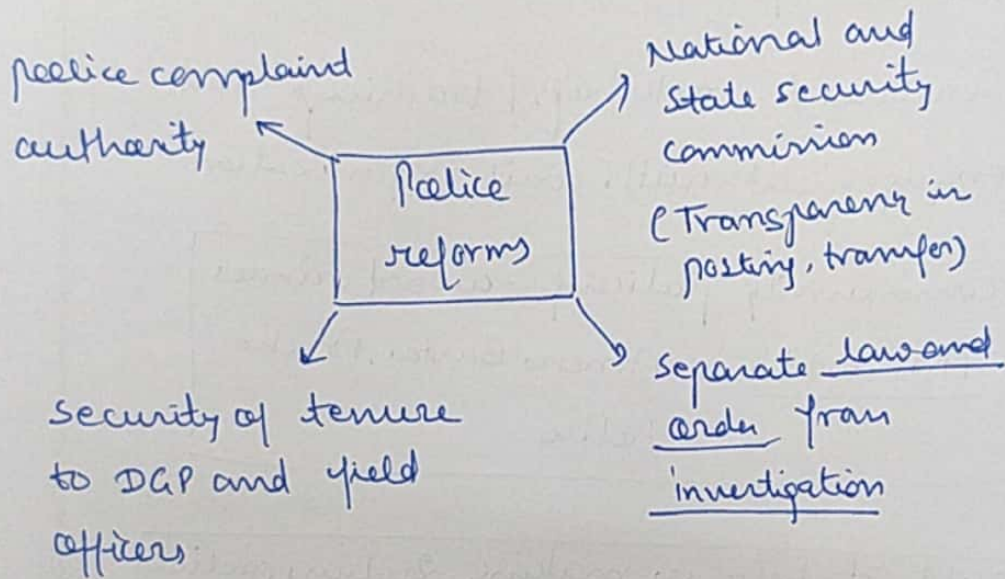 police complaint
authority
National and
State security
commission
(Transparency in
posting, transfer)
Police
reforms
security of tenure
to DGP and field
officers
separate law and
order from
investigation